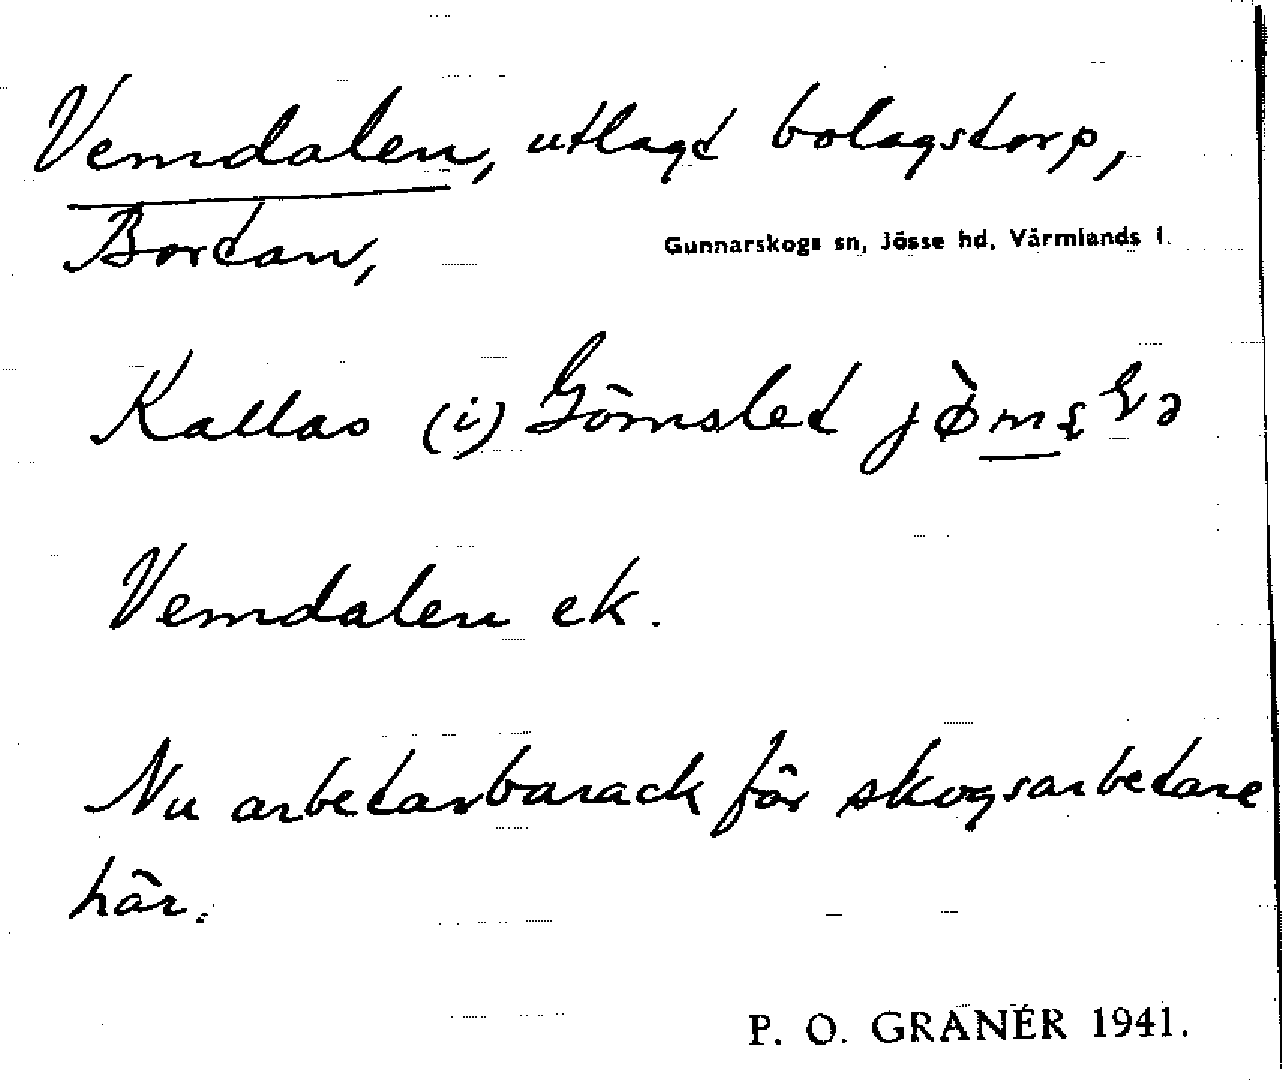 Vemdalen, utlagt bolagstorp,
Bortan,
Gunnarskogs sn, Jösse hd, Värmlands l.
Kallas (i) Gömslet
Vemdalen ek.
Nu arbetarbarack för skogsarbetare
här.
P. O. GRANÉR 1941.